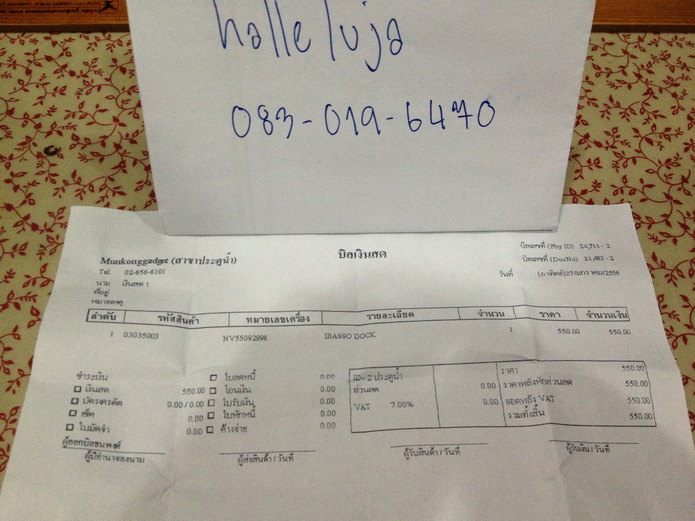 halleluja
083-019-6470
บิลเงินสด
Munkonggadget (สาขาประตูน้ำ)
Tel. 02-656-6101
นาม เงินสด 1
ที่อยู่
หมายเหตุ
บิลเลขที่ (Phy ID) 24,711 - 2
บิลเลขที่ (DocNo) 21,483 - 2
วันที่
ลำดับ รหัสสินค้า หมายเลขเครื่อง รายละเอียด จำนวน ราคา จำนวนเงิน
1 03035003 NV55092998 IBASSO DOCK 1 550.00 550.00
ชำระเงิน
เงินสด 550.00
บัตรเครดิต 0.00 / 0.00
เช็ค 0.00
ใบมัดจำ 0.00
ใบลดหนี้ 0.00
โอนเงิน 0.00
ใบรับเงิน 0.00
ใบหักหนี้ 0.00
ค้างจ่าย 0.00
ID- 2 ประตูน้ำ
ส่วนลด 0.00
VAT 7.00% 0.00
ราคา 550.00
ราคาหลังหักส่วนลด 550.00
ยอดหลัง VAT 550.00
รวมทั้งสิ้น 550.00
ผู้ออกบิลธนพงศ์
ผู้มีอำนาจลงนาม
ผู้ส่งสินค้า / วันที่
ผู้รับสินค้า / วันที่
ผู้รับเงิน / วันที่